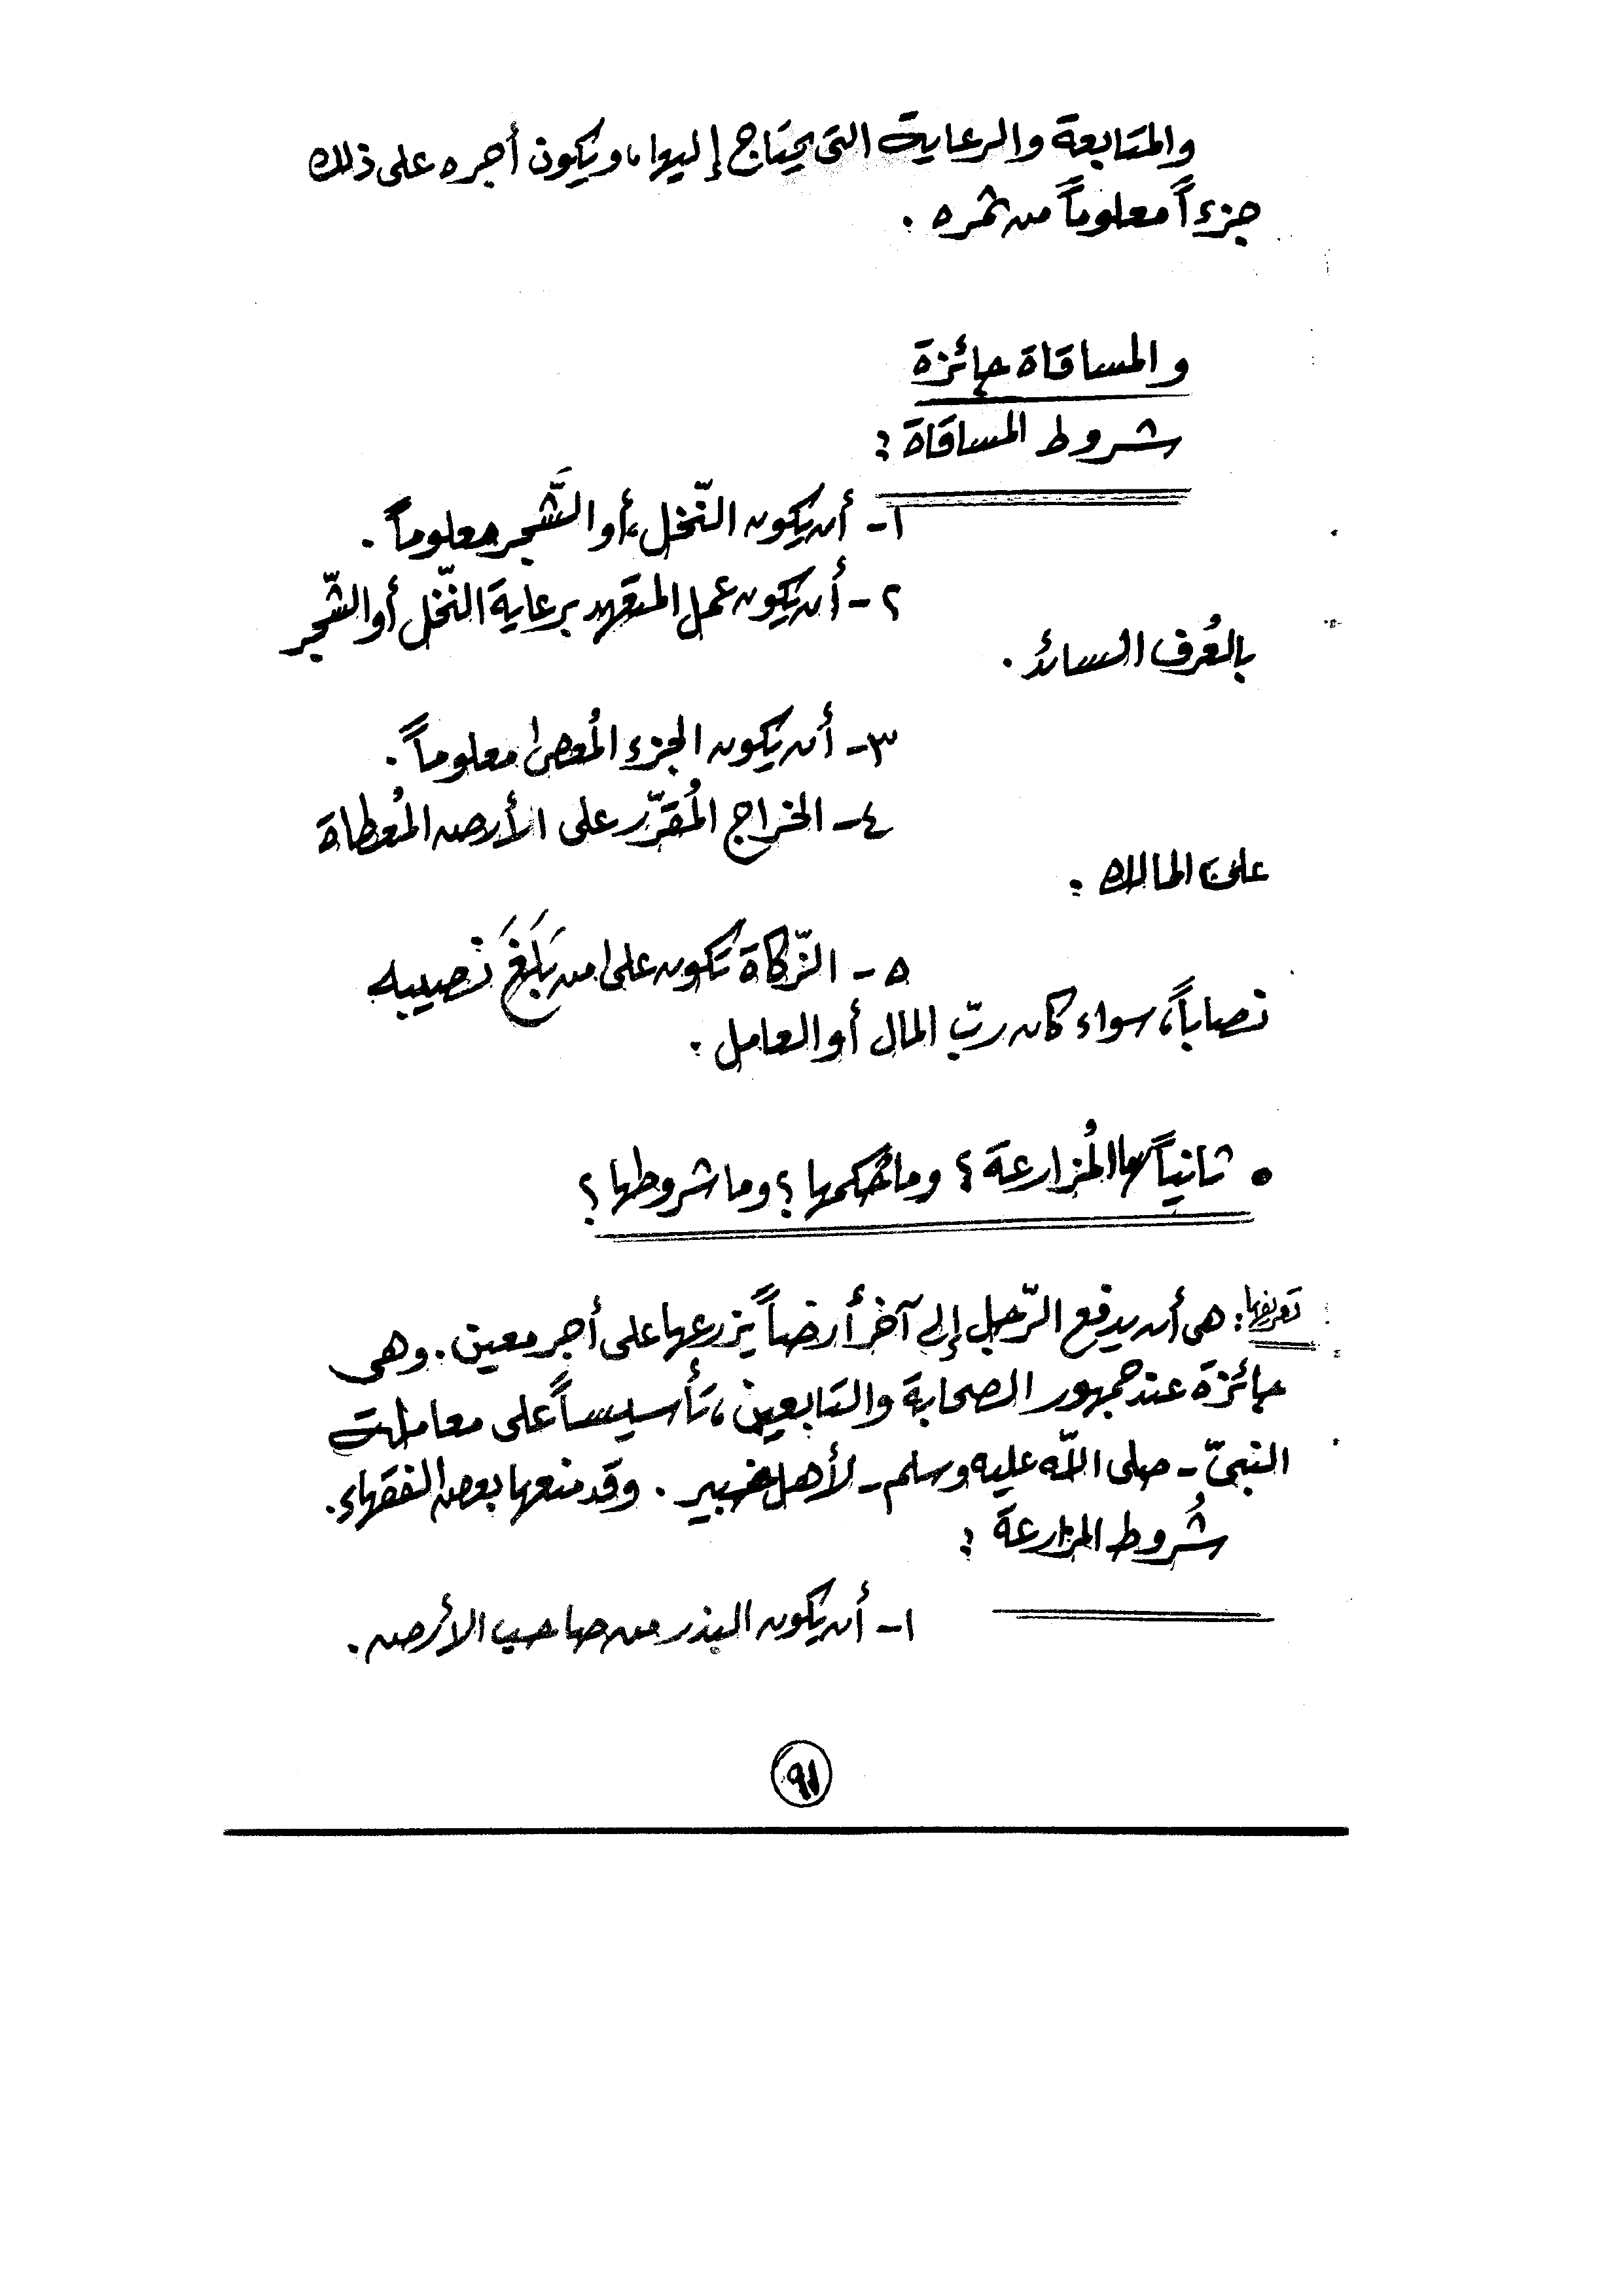 والمتابعة والرعاية التى يحتاج إليها، ويكون أجره على ذلك
جزءاً معلوماً من ثمره .
والمساقاة جائزة
شروط المساقاة :
١- أن يكون النّخل، أو الشَّجر معلوماً .
٢- أن يكون عمل المتعهد برعاية النّخل أو الشّجر
بالعُرف السائد .
٣- أن يكون الجزء المُعطى معلوماً .
٤- الخراج المُقرّر على الأرض المُعطاة
على المالك .
٥- الزّكاة تكون على من بَلَغَ نصيبه
نصاباً، سواء كان ربّ المال أو العامل .
• ثانياً ما المُزارعة ؟ وما حُكمها ؟ وما شروطها ؟
تعريفها : هى أن يدفع الرّجل إلى آخر أرضاً يزرعها على أجر معين . وهى
جائزة عند جمهور الصحابة والتابعين، تأسيساً على معاملت
النبىّ - صلى اللّه عليه وسلم - لأهل خيبر . وقد منعها بعض الفقهاء .
شُروط المزارعة :
١- أن يكون البذر من صاحب الأرض .
٩١